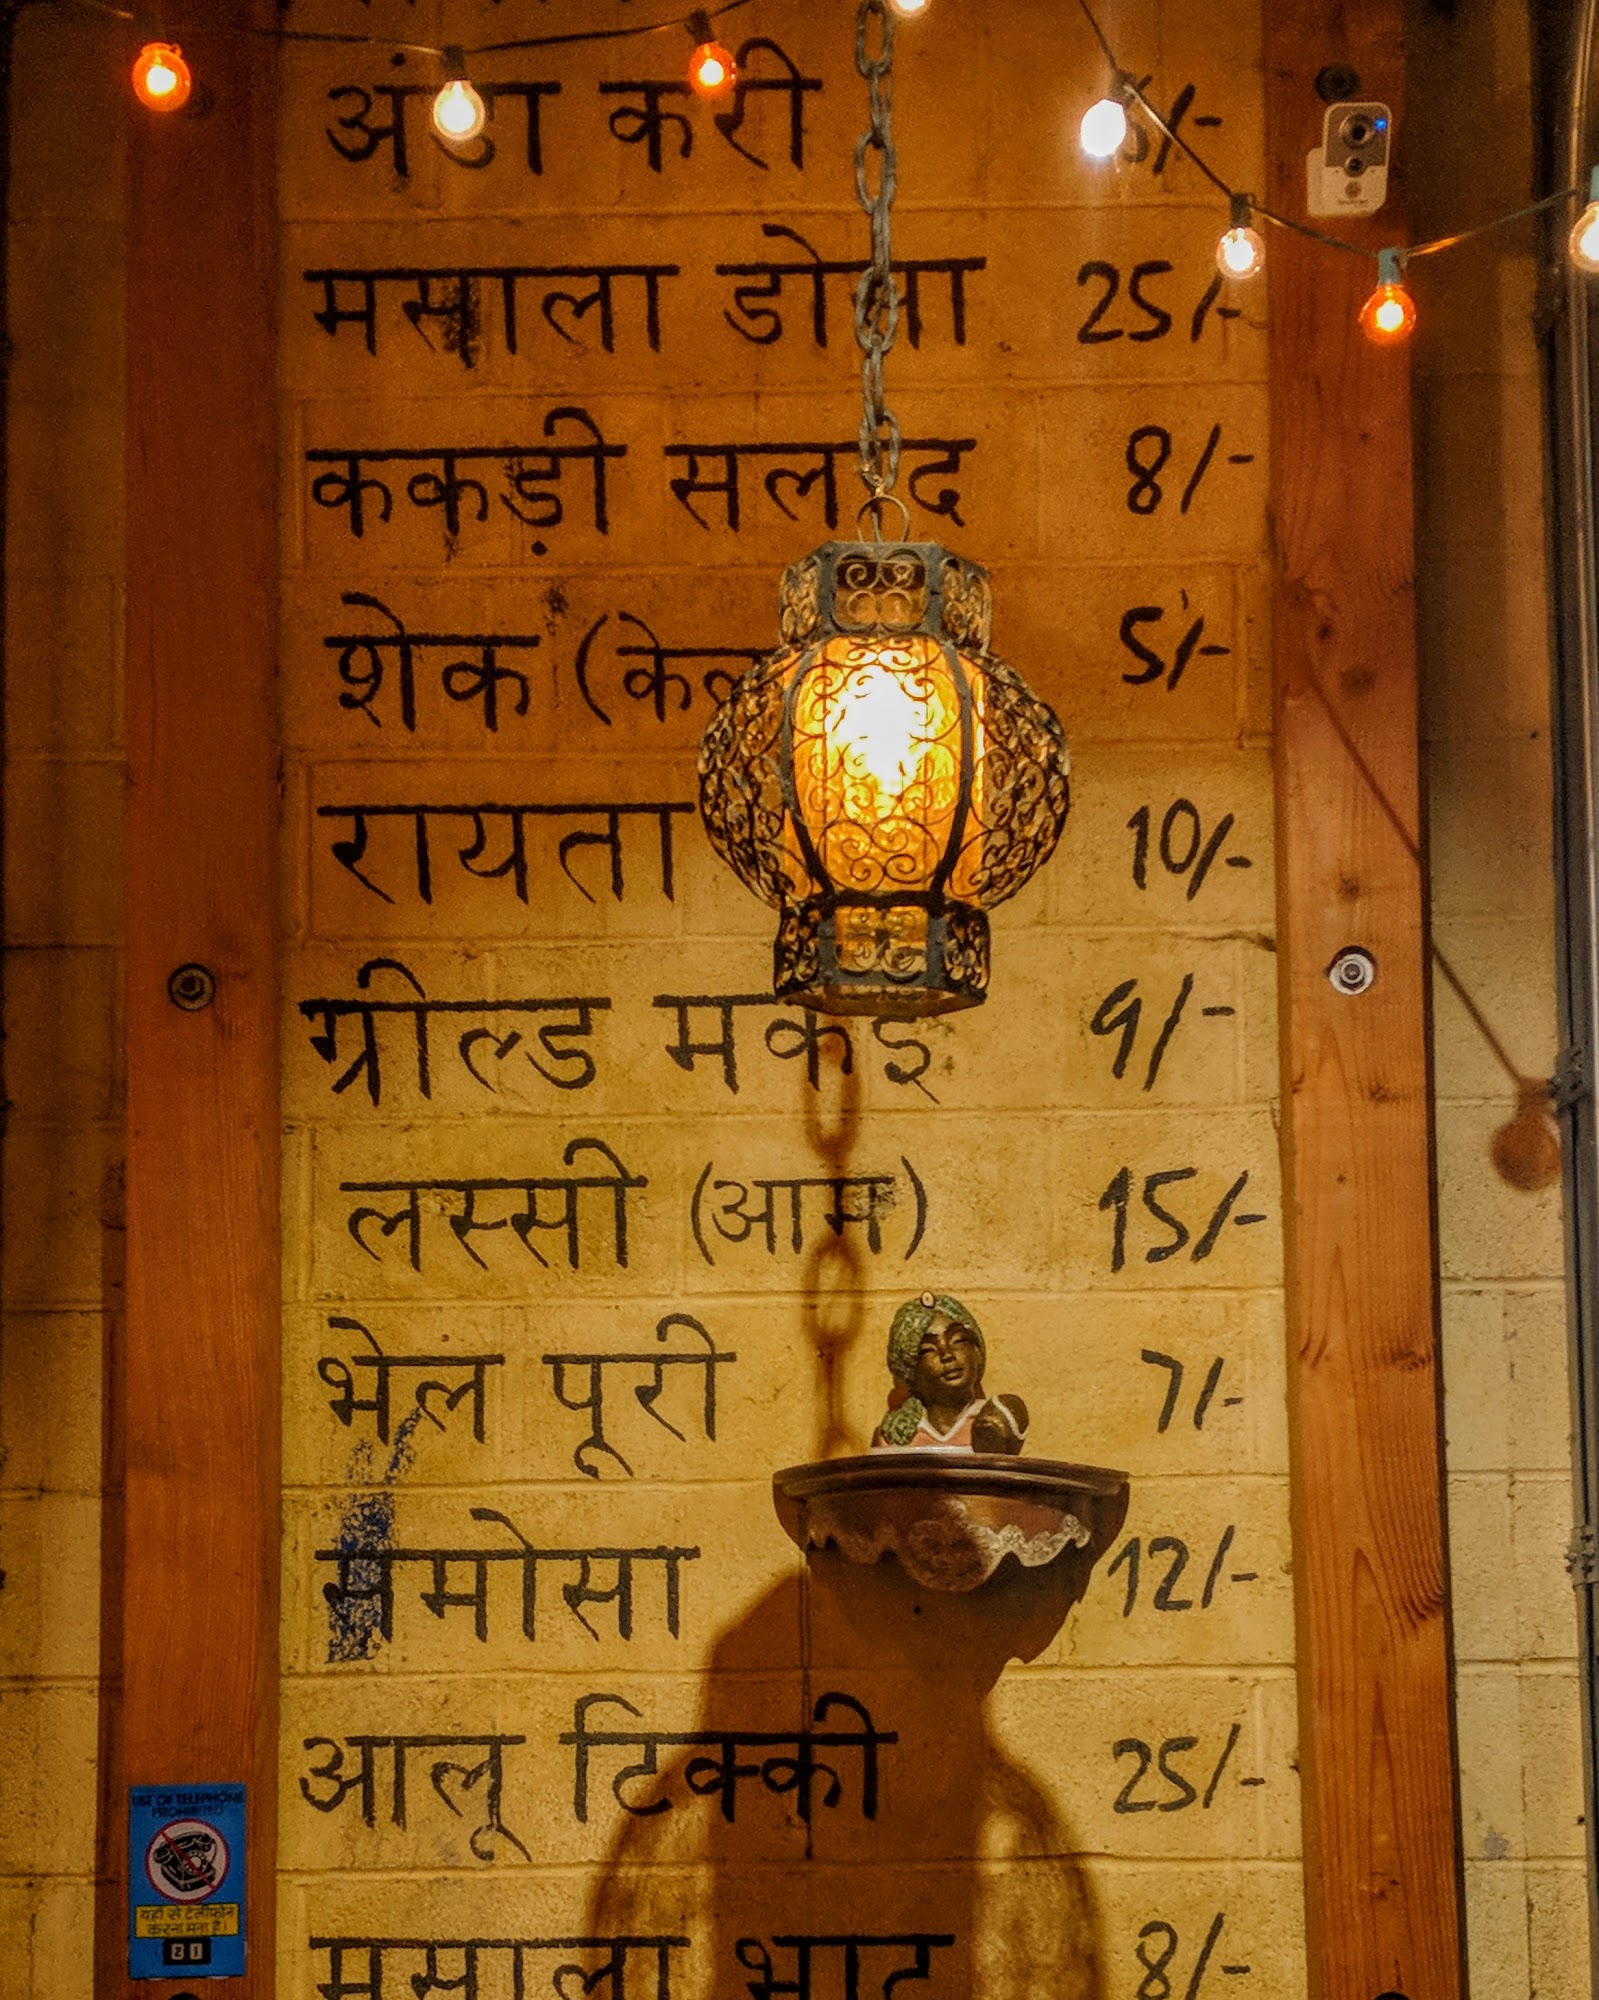 अंडा करी
मसाला डोसा 25/-
ककड़ी सलाद 8/-
शेक (केल 5/-
रायता 10/-
ग्रील्ड मकई 9/-
लस्सी (आम) 15/-
भेल पूरी 7/-
समोसा 12/-
आलू टिक्की 25/-
मसाला 8/-
USE OF TELEPHONE
PROHIBITED
यहाँ से टेलीफोन
करना मना है।
21